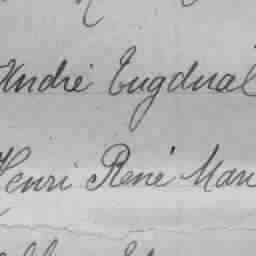 André Tugdual
Henri René Mari